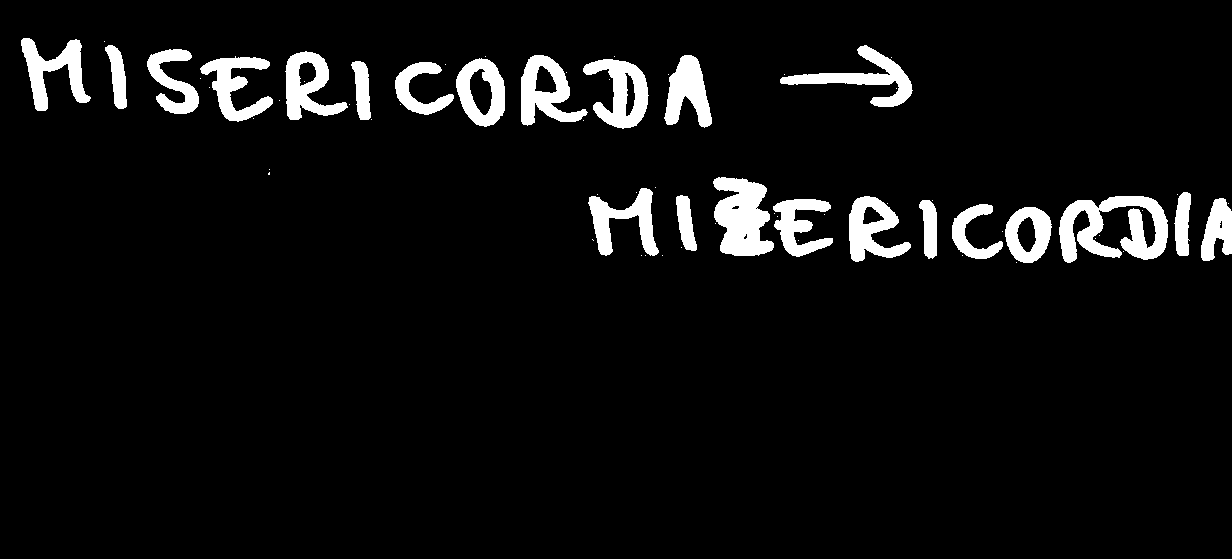 MISERICORDA →
MIZERICORDIA